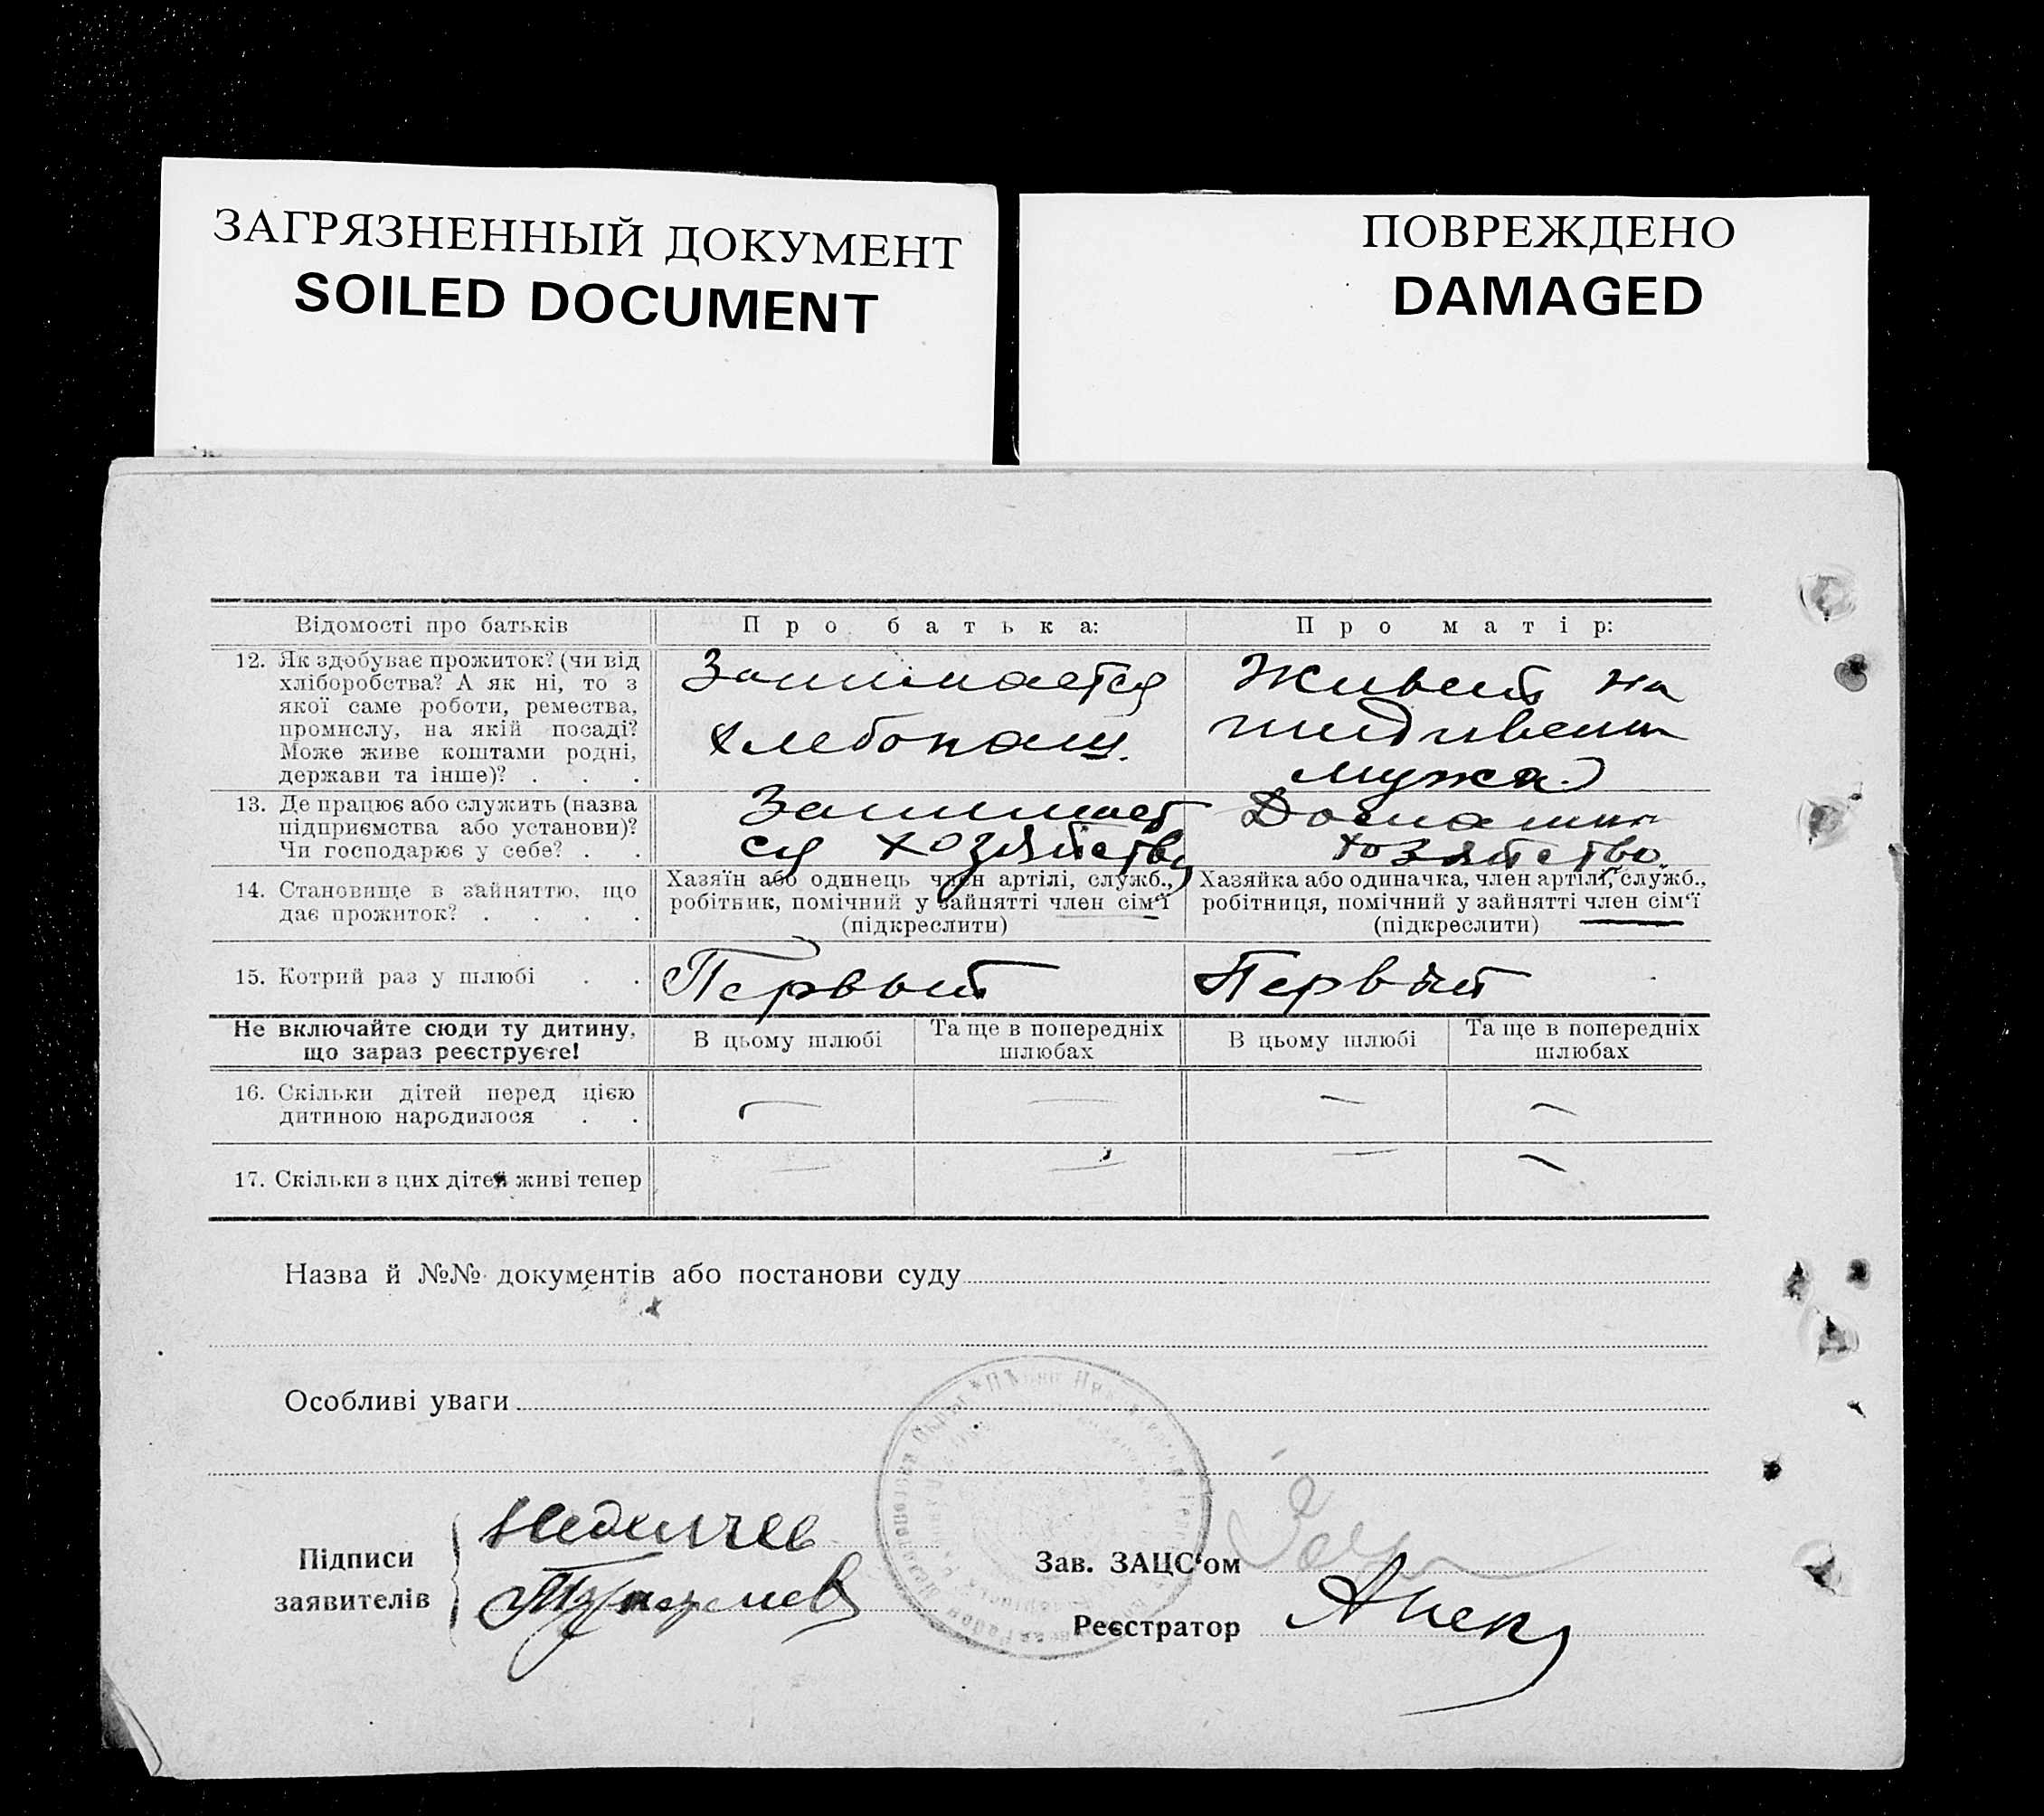 ЗАГРЯЗНЕННЫЙ ДОКУМЕНТ
SOILED DOCUMENT
ПОВРЕЖДЕНО
DAMAGED
Відомості про батьків
Про батька:
Про матір:
12. Як здобуває прожиток? (чи від
хліборобства? А як ні, то з
якої саме роботи, ремества,
промислу, на якій посаді?
Може живе коштами родні,
держави та інше)? . . .
Занимается
хлебопаш.
Живет на
иждивении
мужа
13. Де працює або служить (назва
підприємства або установи)?
Чи господарює у себе? . .
Занимает
ся хозяйство
Домашнее
хозяйство
14. Становище в зайняттю, що
дає прожиток? . . . .
Хазяїн або одинець член артілі, служб.,
робітник, помічний у зайнятті член сім‘ї
(підкреслити)
Хазяйка або одиначка, член артілі, служб.,
робітниця, помічний у зайнятті член сім‘ї
(підкреслити)
15. Котрий раз у шлюбі . .
Первый
Первый
Не включайте сюди ту дитину,
що зараз реєструєте!
В цьому шлюбі
Та ще в попередніх
шлюбах
В цьому шлюбі
Та ще в попередніх
шлюбах
16. Скільки дітей перед цією
дитиною народилося . .
— — — —
17. Скільки з цих дітей живі тепер
— — — —
Назва й №№ документів або постанови суду
Особливі уваги
Підписи
заявителів
Зав. ЗАЦС‘ом
Реєстратор